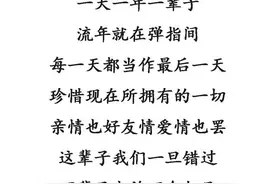 一天一年一辈子
流年就在弹指间
每一天都当作最后一天
珍惜现在所拥有的一切
亲情也好友情爱情也罢
这辈子我们一旦错过